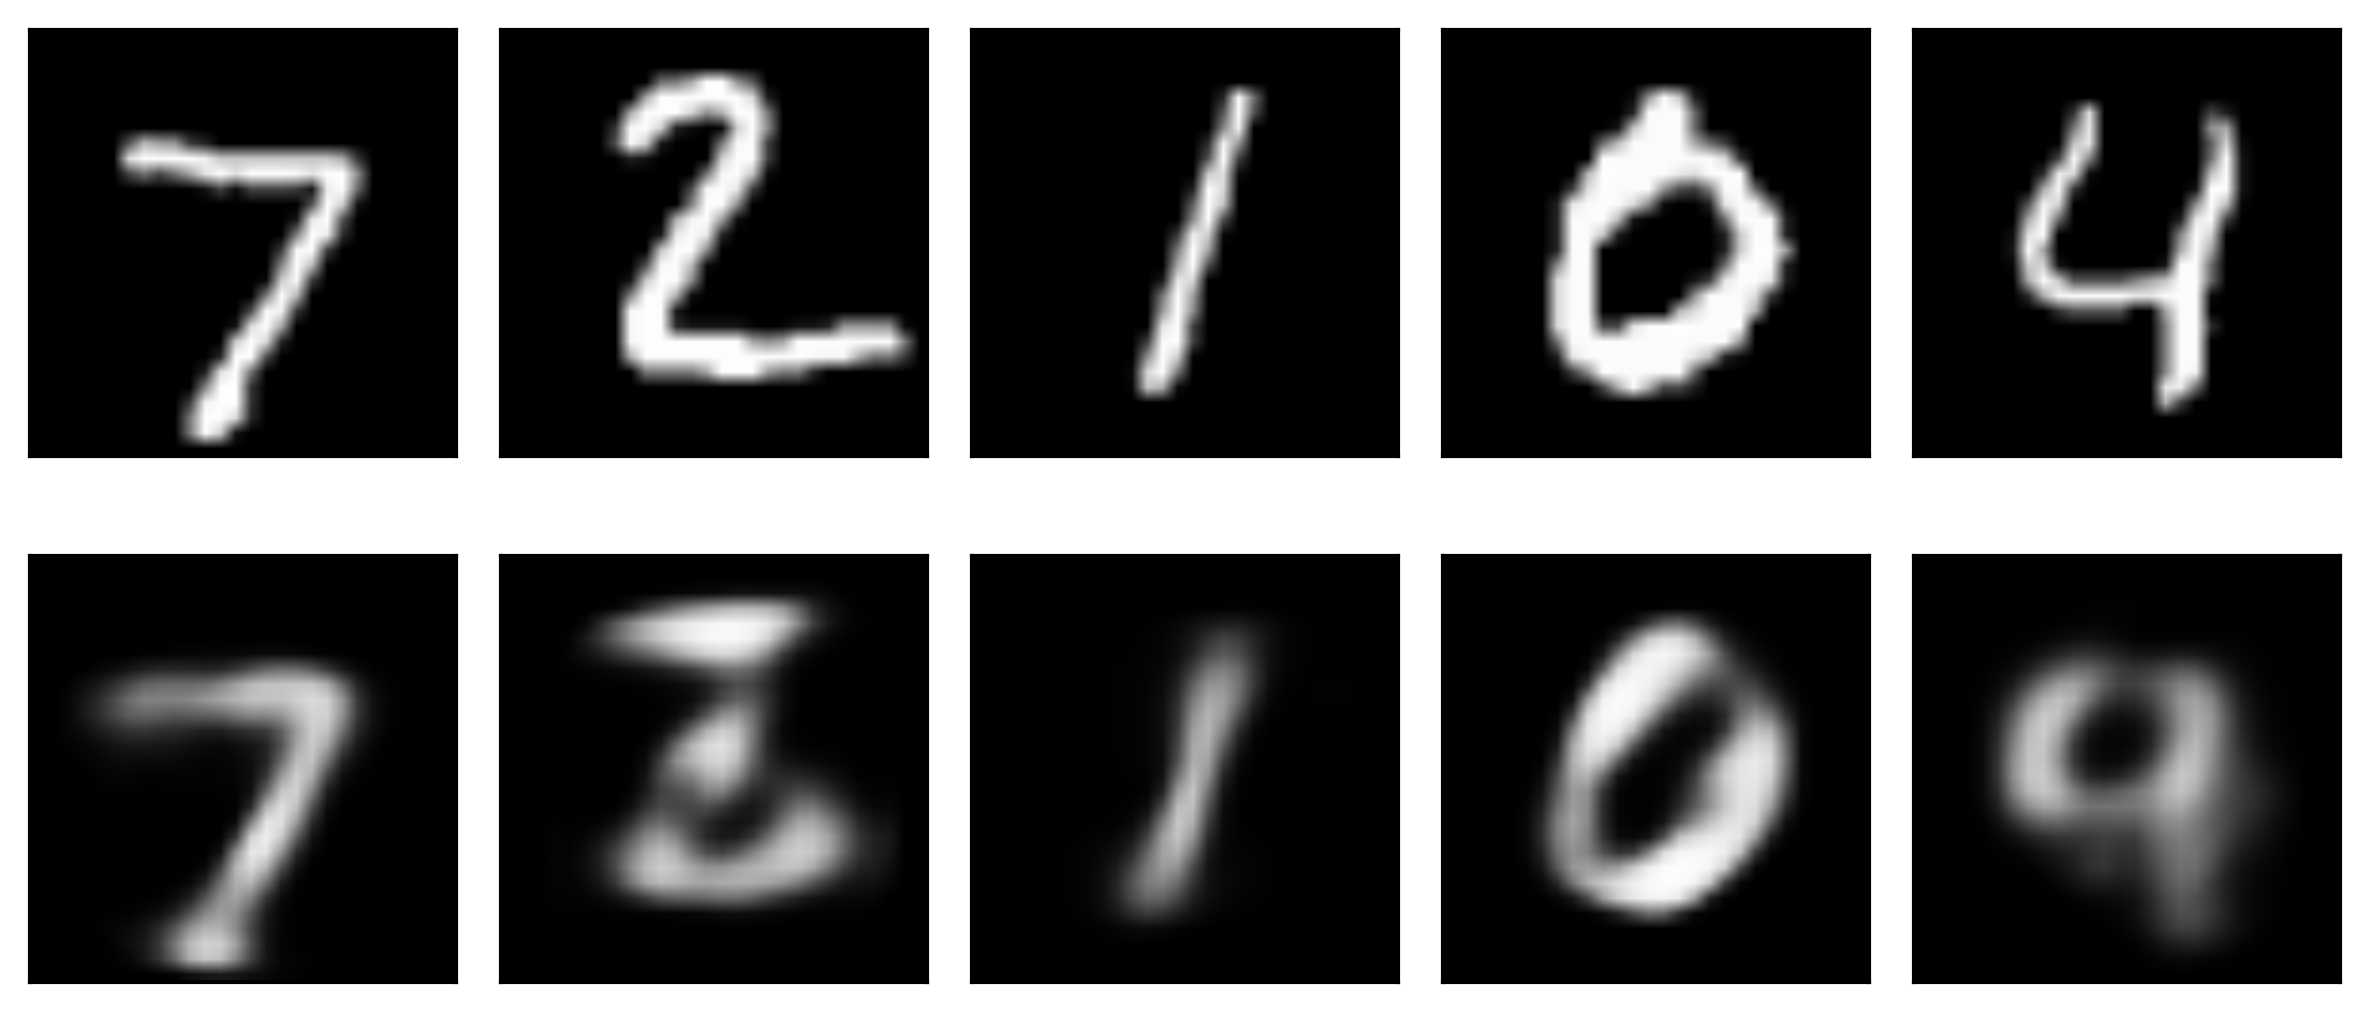 7 2 1 0 4
7 3 1 0 9